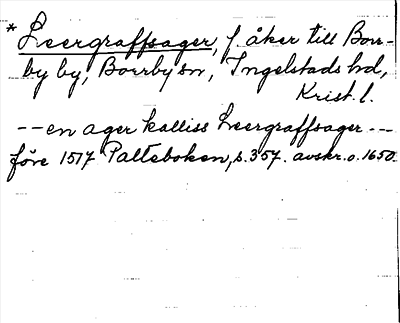 * Leergraffsager, f. åker till Borr-
by by, Borrby sn, Ingelstads hd,
Krist. l.
-- en ager kalliss Leergraffsager --
före 1517 Palteboken, s. 357. avskr. o. 1650.